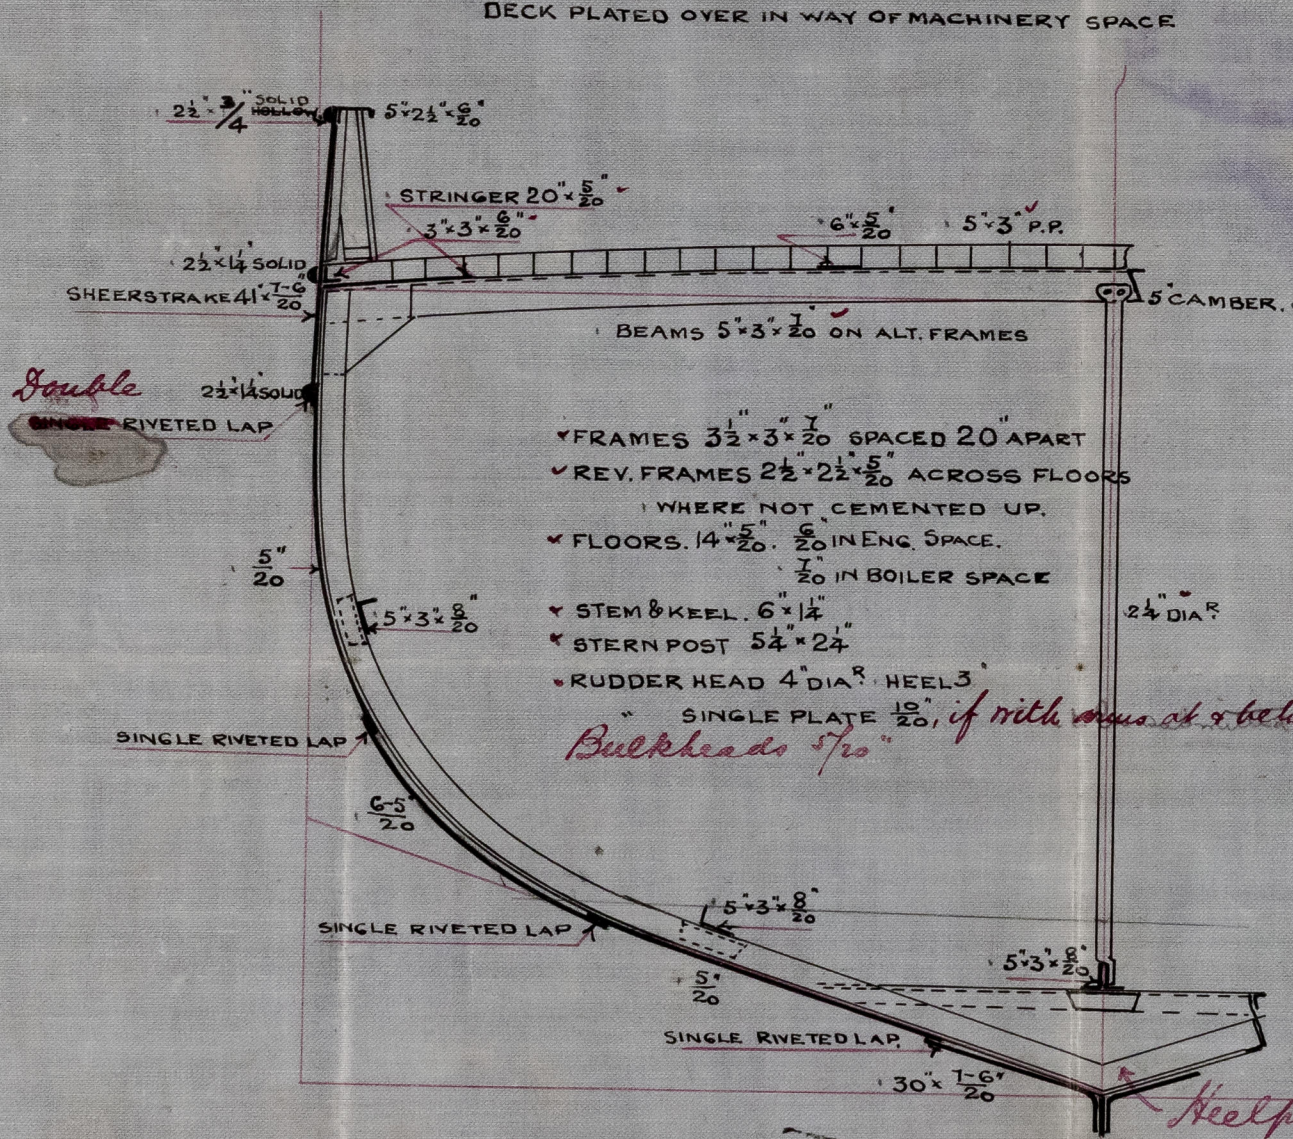 DECK PLATED OVER IN WAY OF MACHINERY SPACE
2½" × 3/4" SOLID
HOLLOW
5" × 2½" × 6/20"
STRINGER 20" × 5/20"
3" × 3" × 6/20"
6" × 5/20"
5" × 3" P.P.
2½" × 1¼" SOLID
SHEERSTRAKE 41" × 7-6/20"
5" CAMBER.
BEAMS 5" × 3" × 7/20" ON ALT. FRAMES
Double
2½" × 1¼" SOLID
SINGLE RIVETED LAP
FRAMES 3½" × 3" × 7/20" SPACED 20" APART
REV. FRAMES 2½" × 2½" × 5/20" ACROSS FLOORS
WHERE NOT CEMENTED UP.
FLOORS. 14" × 5/20". 6/20" IN ENG. SPACE.
7/20" IN BOILER SPACE
5/20"
5" × 3" × 8/20"
STEM & KEEL. 6" × 1¼"
2¼" DIAR.
STERN POST 5¼" × 2¼"
RUDDER HEAD 4" DIAR. HEEL 3"
" SINGLE PLATE 10/20", if with at &
SINGLE RIVETED LAP
Bulkheads 5/20"
6-5/20"
5" × 3" × 8/20"
SINGLE RIVETED LAP
5" × 3" × 8/20"
5/20"
SINGLE RIVETED LAP.
30" × 7-6/20"
Heelp